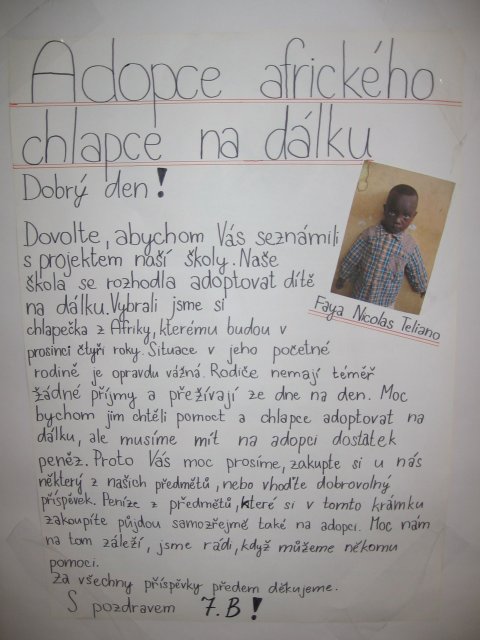 Adopce afrického
chlapce na dálku
Dobrý den!
Dovolte, abychom Vás seznámili
s projektem naší školy. Naše
škola se rozhodla adoptovat dítě
na dálku. Vybrali jsme si
chlapečka z Afriky, kterému budou v
prosinci čtyři roky. Situace v jeho početné
rodině je opravdu vážná. Rodiče nemají téměř
žádné příjmy a přežívají ze dne na den. Moc
bychom jim chtěli pomoct a chlapce adoptovat na
dálku, ale musíme mít na adopci dostatek
peněz. Proto Vás moc prosíme, zakupte si u nás
některý z našich předmětů, nebo vhoďte dobrovolný
příspěvek. Peníze z předmětů, které si v tomto krámku
zakoupíte půjdou samozřejmě také na adopci. Moc nám
na tom záleží, jsme rádi, když můžeme někomu
pomoci.
Za všechny příspěvky předem děkujeme.
S pozdravem 7.B!
Faya Nicolas Teliano